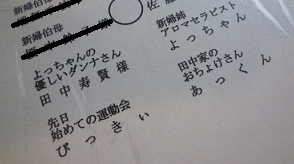 新婦伯母
新婦伯母
佐
よっちゃんの
優しいダンナさん
田中寿賢様
先日
始めての運動会
ぴっきぃ
新婦姉
アロマセラピスト
よっちゃん
田中家の
おちょけさん
あっくん